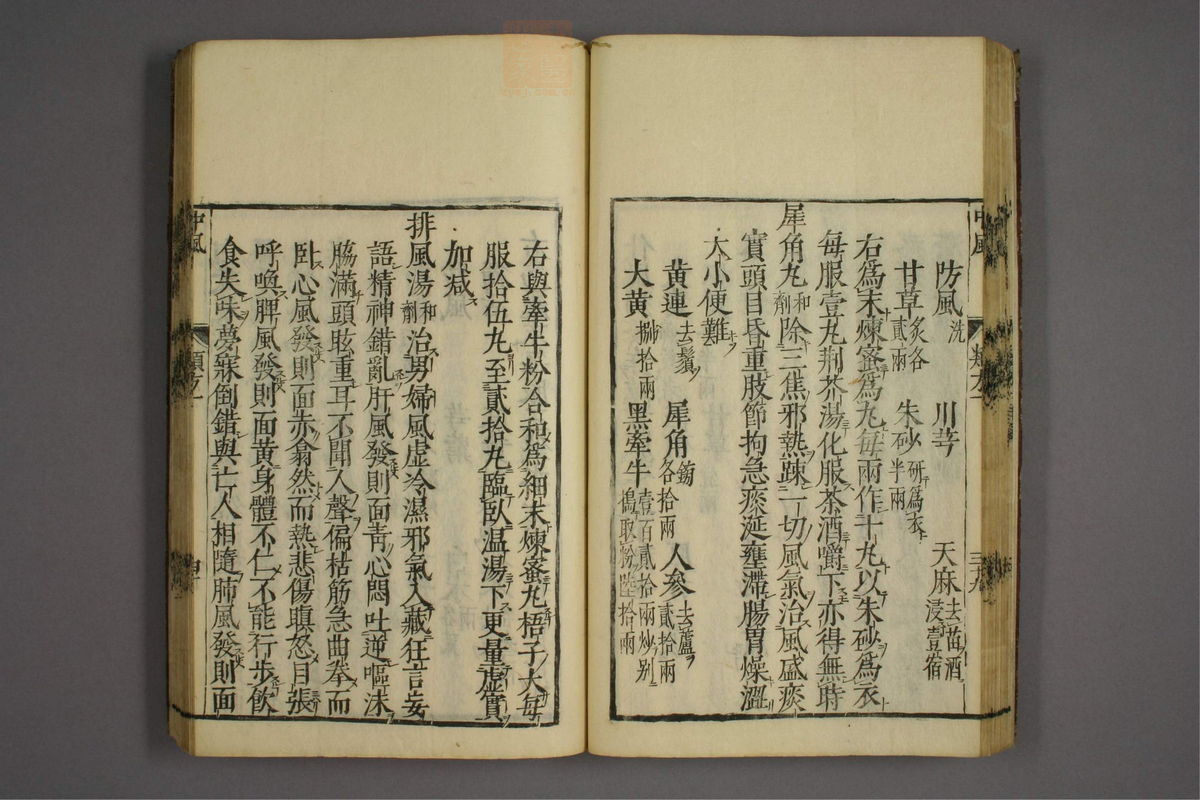 中風
三十九
防風洗 川芎 天麻去苗酒浸壹宿
甘草炙各貳兩 朱砂研爲衣半兩
右爲末煉蜜爲丸每兩作十丸以朱砂爲衣
每服壹丸荆芥湯化服茶酒嚼下亦得無時
犀角丸和劑除三焦邪熱踈一切風氣治風盛痰
實頭目昏重肢節拘急痰涎壅滯腸胃燥澀
大小便難
黄連去鬚 犀角鎊各拾兩 人參去蘆貳拾兩
大黄捌拾兩 黒牽牛壹百貳拾兩炒别搗取粉陸拾兩
右與牽牛粉合和爲細末煉蜜丸梧子大每
服拾伍丸至貳拾丸臨臥温湯下更量虚實
加减
排風湯和劑治男婦風虚冷濕邪氣入藏狂言妄
語精神錯亂肝風發則面青心悶吐逆嘔沫
脇滿頭眩重耳不聞人聲偏枯筋急曲拳而
卧心風發則面赤翕然而熱悲傷瞋怒目張
呼喚脾風發則面黄身體不仁不能行步飲
食失味夢寐倒錯與亡人相隨肺風發則面
中風